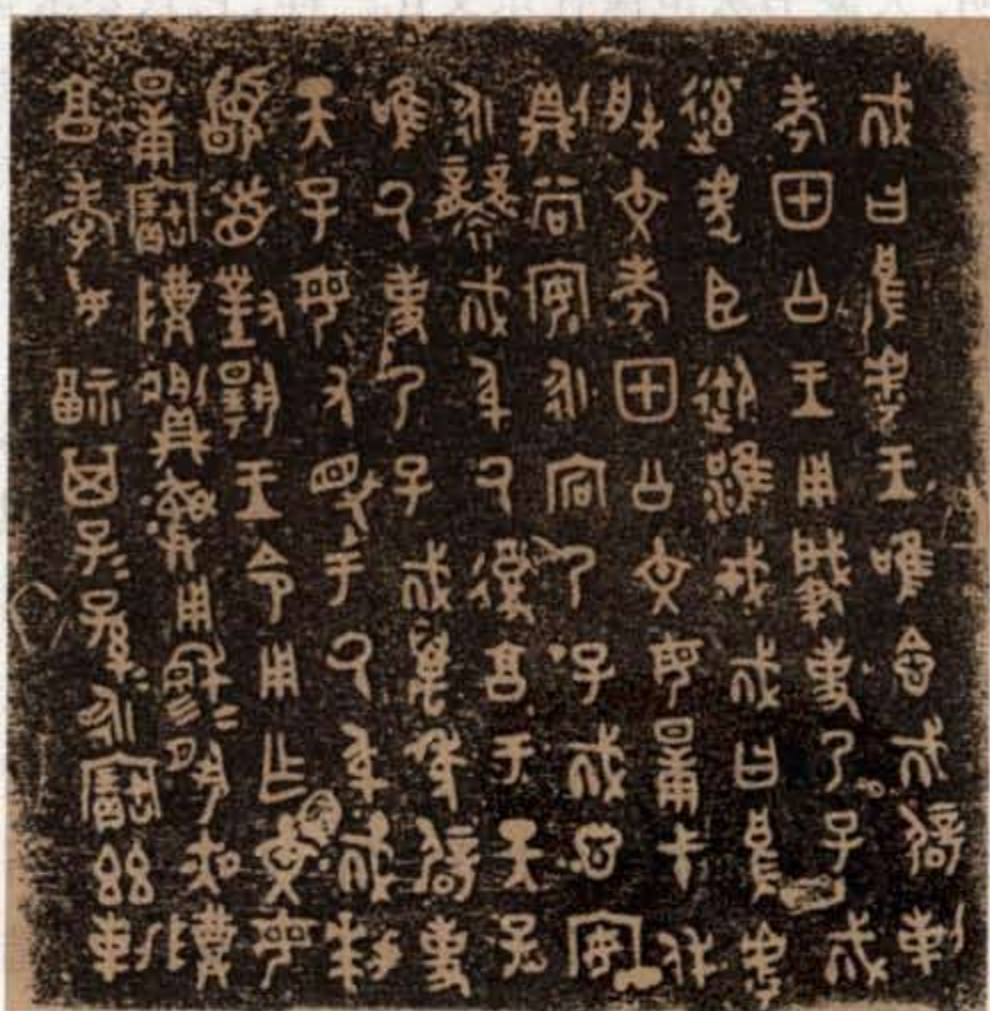 𢦚曰烏虖王唯念𢦚辟剌
考甲公王用肇事乃子𢦚
率虎臣御淮戎𢦚曰烏虖
朕文考甲公文母日庚弋休
則尚安永宕乃子𢦚心安
永襲𢦚身厥復享于天子
唯厥事乃子𢦚萬年辟事
天子毋又眈于厥身𢦚拜
稽首對揚王令用乍文母
日庚寶尊彝用穆穆夙夜尊
享孝妥福其子子孫孫永寶茲剌